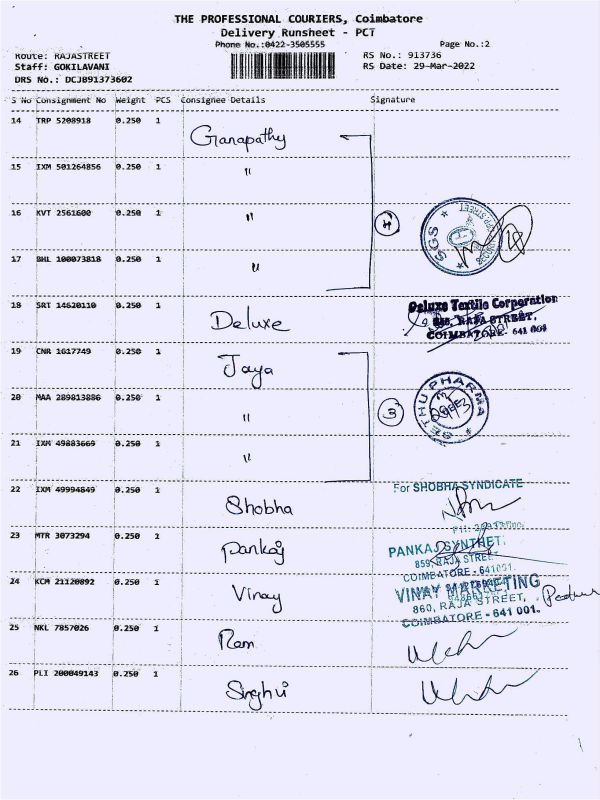 THE PROFESSIONAL COURIERS, Coimbatore
Delivery Runsheet - PCT
Phone No.:0422-3505555
Page No.:2
Route: RAJASTREET
RS No.: 913736
Staff: GOKILAVANI
RS Date: 29-Mar-2022
DRS No.: DCJB91373602
S No Consignment No Weight PCS Consignee Details Signature
14 TRP 5208918 0.250 1 Ganapathy
15 IXM 501264856 0.250 1 "
16 KVT 2561600 0.250 1 " 4 SGS
17 BHL 100073818 0.250 1 "
18 SRT 14620110 0.250 1 Deluxe
Deluxe Textile Corporation
RAJA STREET,
COIMBATORE. 641 001
19 CNR 1617749 0.250 1 Jaya
20 MAA 289813886 0.250 1 " 3 SETHU PHARMA
21 IXM 49883669 0.250 1 "
22 IXM 49994849 0.250 1 Shobha
For SHOBHA SYNDICATE
23 MTR 3073294 0.250 1 Pankaj
PANKAJ SYNTHET
859, RAJA STREE
COIMBATORE - 641001.
24 KCM 21120892 0.250 1 Vinay
VINAY MARKETING
860, RAJA STREET,
COIMBATORE - 641 001.
25 NKL 7857026 0.250 1 Ram
26 PLI 200049143 0.250 1 Singhvi